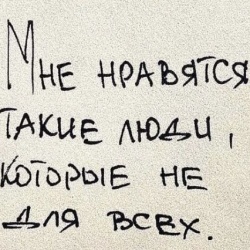 Мне нравятся
такие люди,
которые не
для всех.